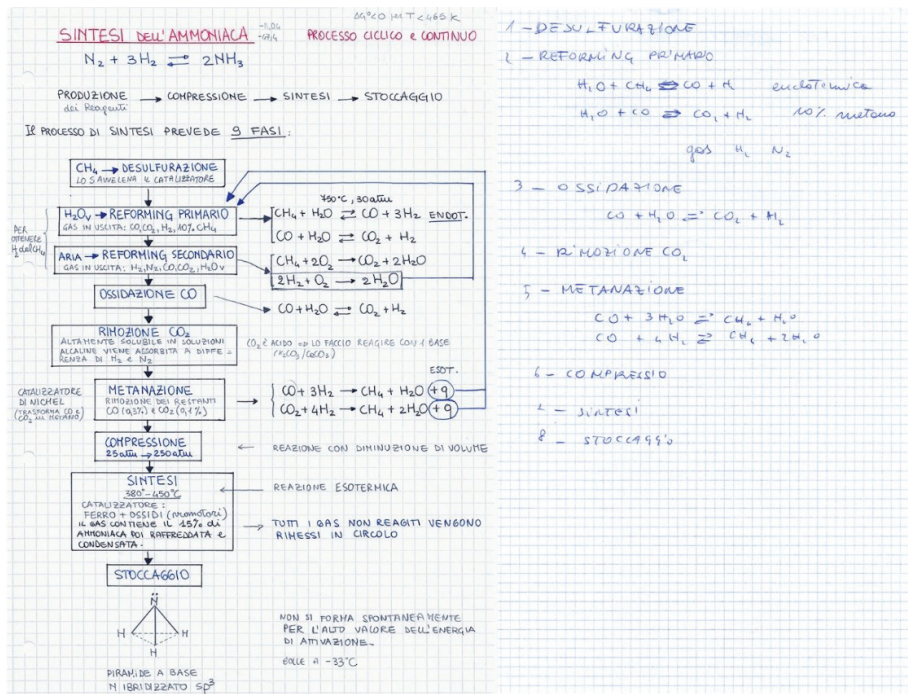 ΔG°<0 per T<465 K
SINTESI DELL'AMMONIACA
PROCESSO CICLICO e CONTINUO
N₂ + 3H₂ ⇌ 2NH₃
PRODUZIONE dei Reagenti → COMPRESSIONE → SINTESI → STOCCAGGIO
Il PROCESSO DI SINTESI PREVEDE 9 FASI:
CH₄ → DESULFURAZIONE
LO S AVVELENA IL CATALIZZATORE
PER OTTENERE H₂ dal CH₄
H₂Oᵥ → REFORMING PRIMARIO
GAS IN USCITA: CO,CO₂,H₂,10% CH₄
750°C, 30 atm
CH₄ + H₂O ⇌ CO + 3H₂ ENDOT.
CO + H₂O ⇌ CO₂ + H₂
ARIA → REFORMING SECONDARIO
GAS IN USCITA: H₂,N₂,CO,CO₂,H₂Oᵥ
CH₄ + 2O₂ → CO₂ + 2H₂O
2H₂ + O₂ → 2H₂O
OSSIDAZIONE CO
CO + H₂O ⇌ CO₂ + H₂
RIMOZIONE CO₂
ALTAMENTE SOLUBILE IN SOLUZIONI
ALCALINE VIENE ASSORBITA A DIFFE-
RENZA DI H₂ e N₂
CO₂ È ACIDO => LO FACCIO REAGIRE CON 1 BASE
CATALIZZATORE
DI NICHEL
(TRASFORMA CO e
CO₂ in METANO)
METANAZIONE
RIMOZIONE DEI RESTANTI
CO (0,3%) e CO₂ (0,1%)
ESOT.
CO + 3H₂ → CH₄ + H₂O +q
CO₂ + 4H₂ → CH₄ + 2H₂O +q
COMPRESSIONE
25 atm → 250 atm
← REAZIONE CON DIMINUZIONE DI VOLUME
SINTESI
380°-450°C
CATALIZZATORE:
FERRO + OSSIDI (promotori)
IL GAS CONTIENE IL 15% di
AMMONIACA POI RAFFREDDATA e
CONDENSATA.
← REAZIONE ESOTERMICA
→ TUTTI I GAS NON REAGITI VENGONO
RIMESSI IN CIRCOLO
STOCCAGGIO
N
H H
H
PIRAMIDE A BASE
N IBRIDIZZATO sp³
NON SI FORMA SPONTANEAMENTE
PER L'ALTO VALORE DELL'ENERGIA
DI ATTIVAZIONE.
BOLLE A -33°C
1 - DESULFURAZIONE
2 - REFORMING PRIMARIO
H₂O + CH₄ ⇌ CO + H₂ endotermica
H₂O + CO ⇌ CO₂ + H₂ 10% metano
gas H₂ N₂
3 - OSSIDAZIONE
CO + H₂O ⇌ CO₂ + H₂
4 - RIMOZIONE CO₂
5 - METANAZIONE
CO + 3H₂O ⇌ CH₄ + H₂O
CO + 4H₂ ⇌ CH₄ + 2H₂O
6 - COMPRESSIO
7 - SINTESI
8 - STOCCAGGIO